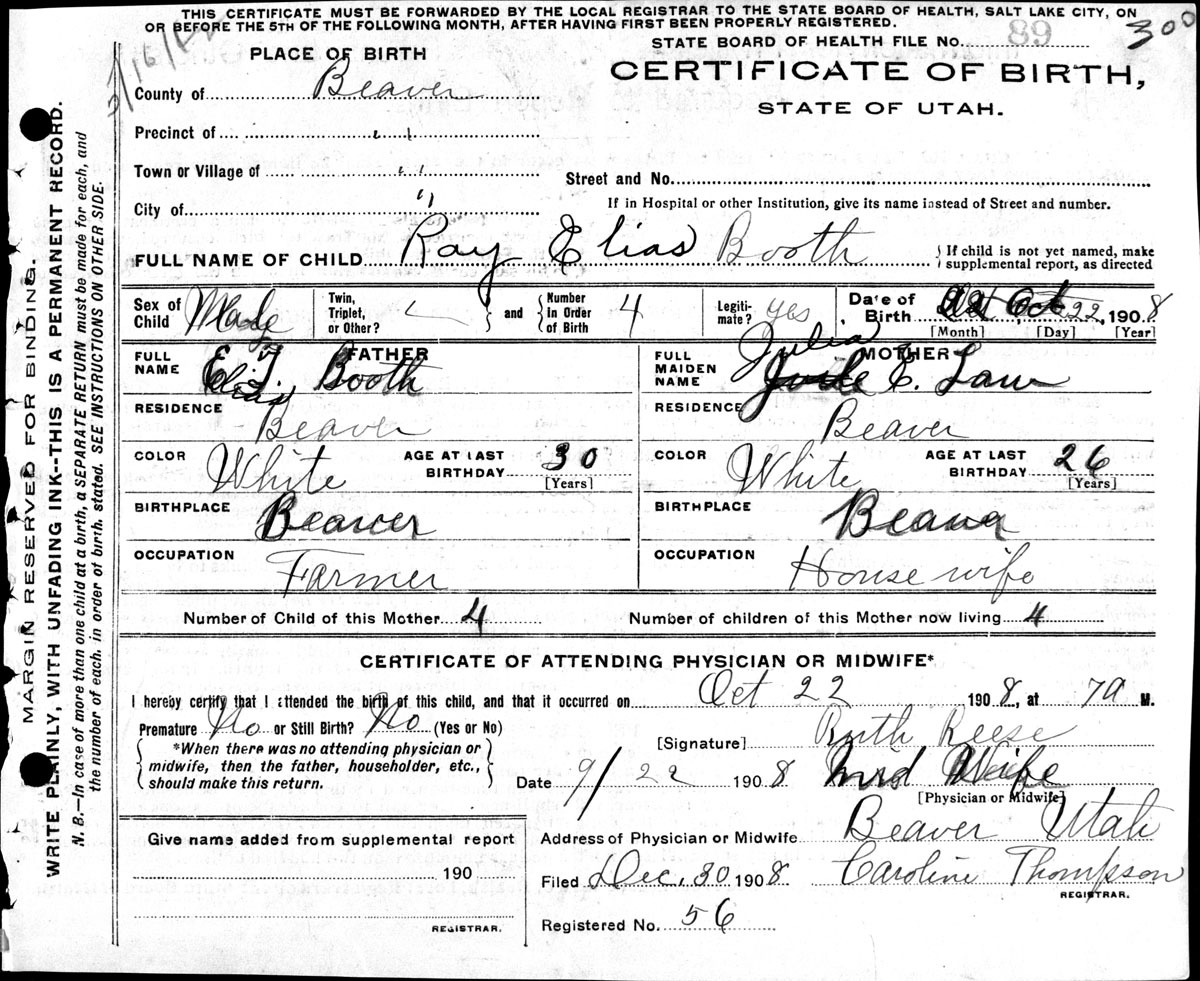 THIS CERTIFICATE MUST BE FORWARDED BY THE LOCAL REGISTRAR TO THE STATE BOARD OF HEALTH, SALT LAKE CITY, ON
OR BEFORE THE 5TH OF THE FOLLOWING MONTH, AFTER HAVING FIRST BEEN PROPERLY REGISTERED.
300
STATE BOARD OF HEALTH FILE No. 89
PLACE OF BIRTH
CERTIFICATE OF BIRTH,
STATE OF UTAH.
County of Beaver
Precinct of " "
Town or Village of " "
Street and No.
City of "
If in Hospital or other Institution, give its name instead of Street and number.
FULL NAME OF CHILD Ray Elias Booth
If child is not yet named, make
supplemental report, as directed
Sex of Child Male
Twin, Triplet, or Other?
and
Number in Order of Birth 4
Legiti-mate? yes
Date of Birth Oct 22, 1908
[Month] [Day] [Year]
FATHER
FULL NAME Elias Booth
MOTHER
FULL MAIDEN NAME Julia E. Law
RESIDENCE Beaver
RESIDENCE Beaver
COLOR White AGE AT LAST BIRTHDAY 30 [Years]
COLOR White AGE AT LAST BIRTHDAY 26 [Years]
BIRTHPLACE Beaver
BIRTHPLACE Beaver
OCCUPATION Farmer
OCCUPATION House wife
Number of Child of this Mother 4
Number of children of this Mother now living 4
CERTIFICATE OF ATTENDING PHYSICIAN OR MIDWIFE*
I hereby certify that I attended the birth of this child, and that it occurred on Oct 22 1908, at 7a M.
Premature No or Still Birth? No (Yes or No)
*When there was no attending physician or
midwife, then the father, householder, etc.,
should make this return.
[Signature] Ruth Reese
Date 9/22 1908 Mid Wife
[Physician or Midwife]
Give name added from supplemental report
190
REGISTRAR.
Address of Physician or Midwife Beaver Utah
Filed Dec, 30 1908 Caroline Thompson
REGISTRAR.
Registered No. 56
MARGIN RESERVED FOR BINDING.
WRITE PLAINLY, WITH UNFADING INK--THIS IS A PERMANENT RECORD.
N. B.—In case of more than one child at a birth, a SEPARATE RETURN must be made for each, and
the number of each, in order of birth, stated. SEE INSTRUCTIONS ON OTHER SIDE.